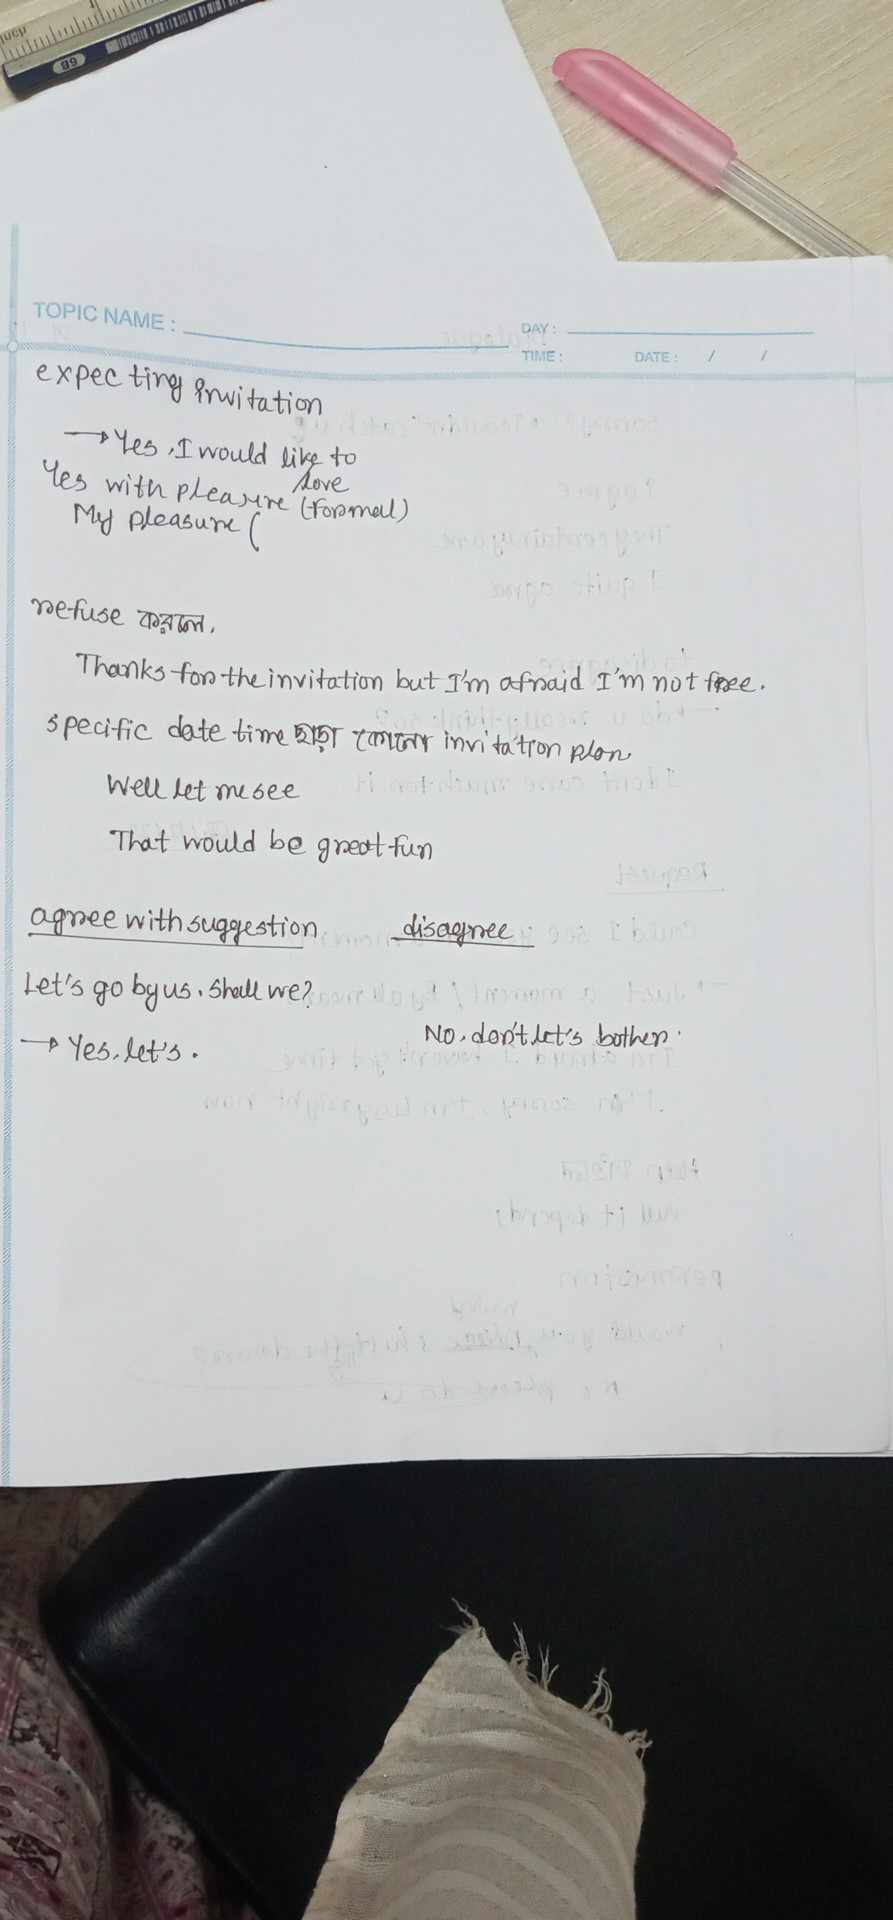 6B
TOPIC NAME :
DAY :
TIME :
DATE : / /
expecting invitation
→ Yes, I would like to
love
Yes with pleasure (formal)
My pleasure (
refuse করলে,
Thanks for the invitation but I'm afraid I'm not free.
specific date time ছাড়া কোনো invitation plan
Well let me see
That would be great fun
agree with suggestion disagree :
Let's go by us, shall we?
→ Yes, let's.
No, don't let's bother.